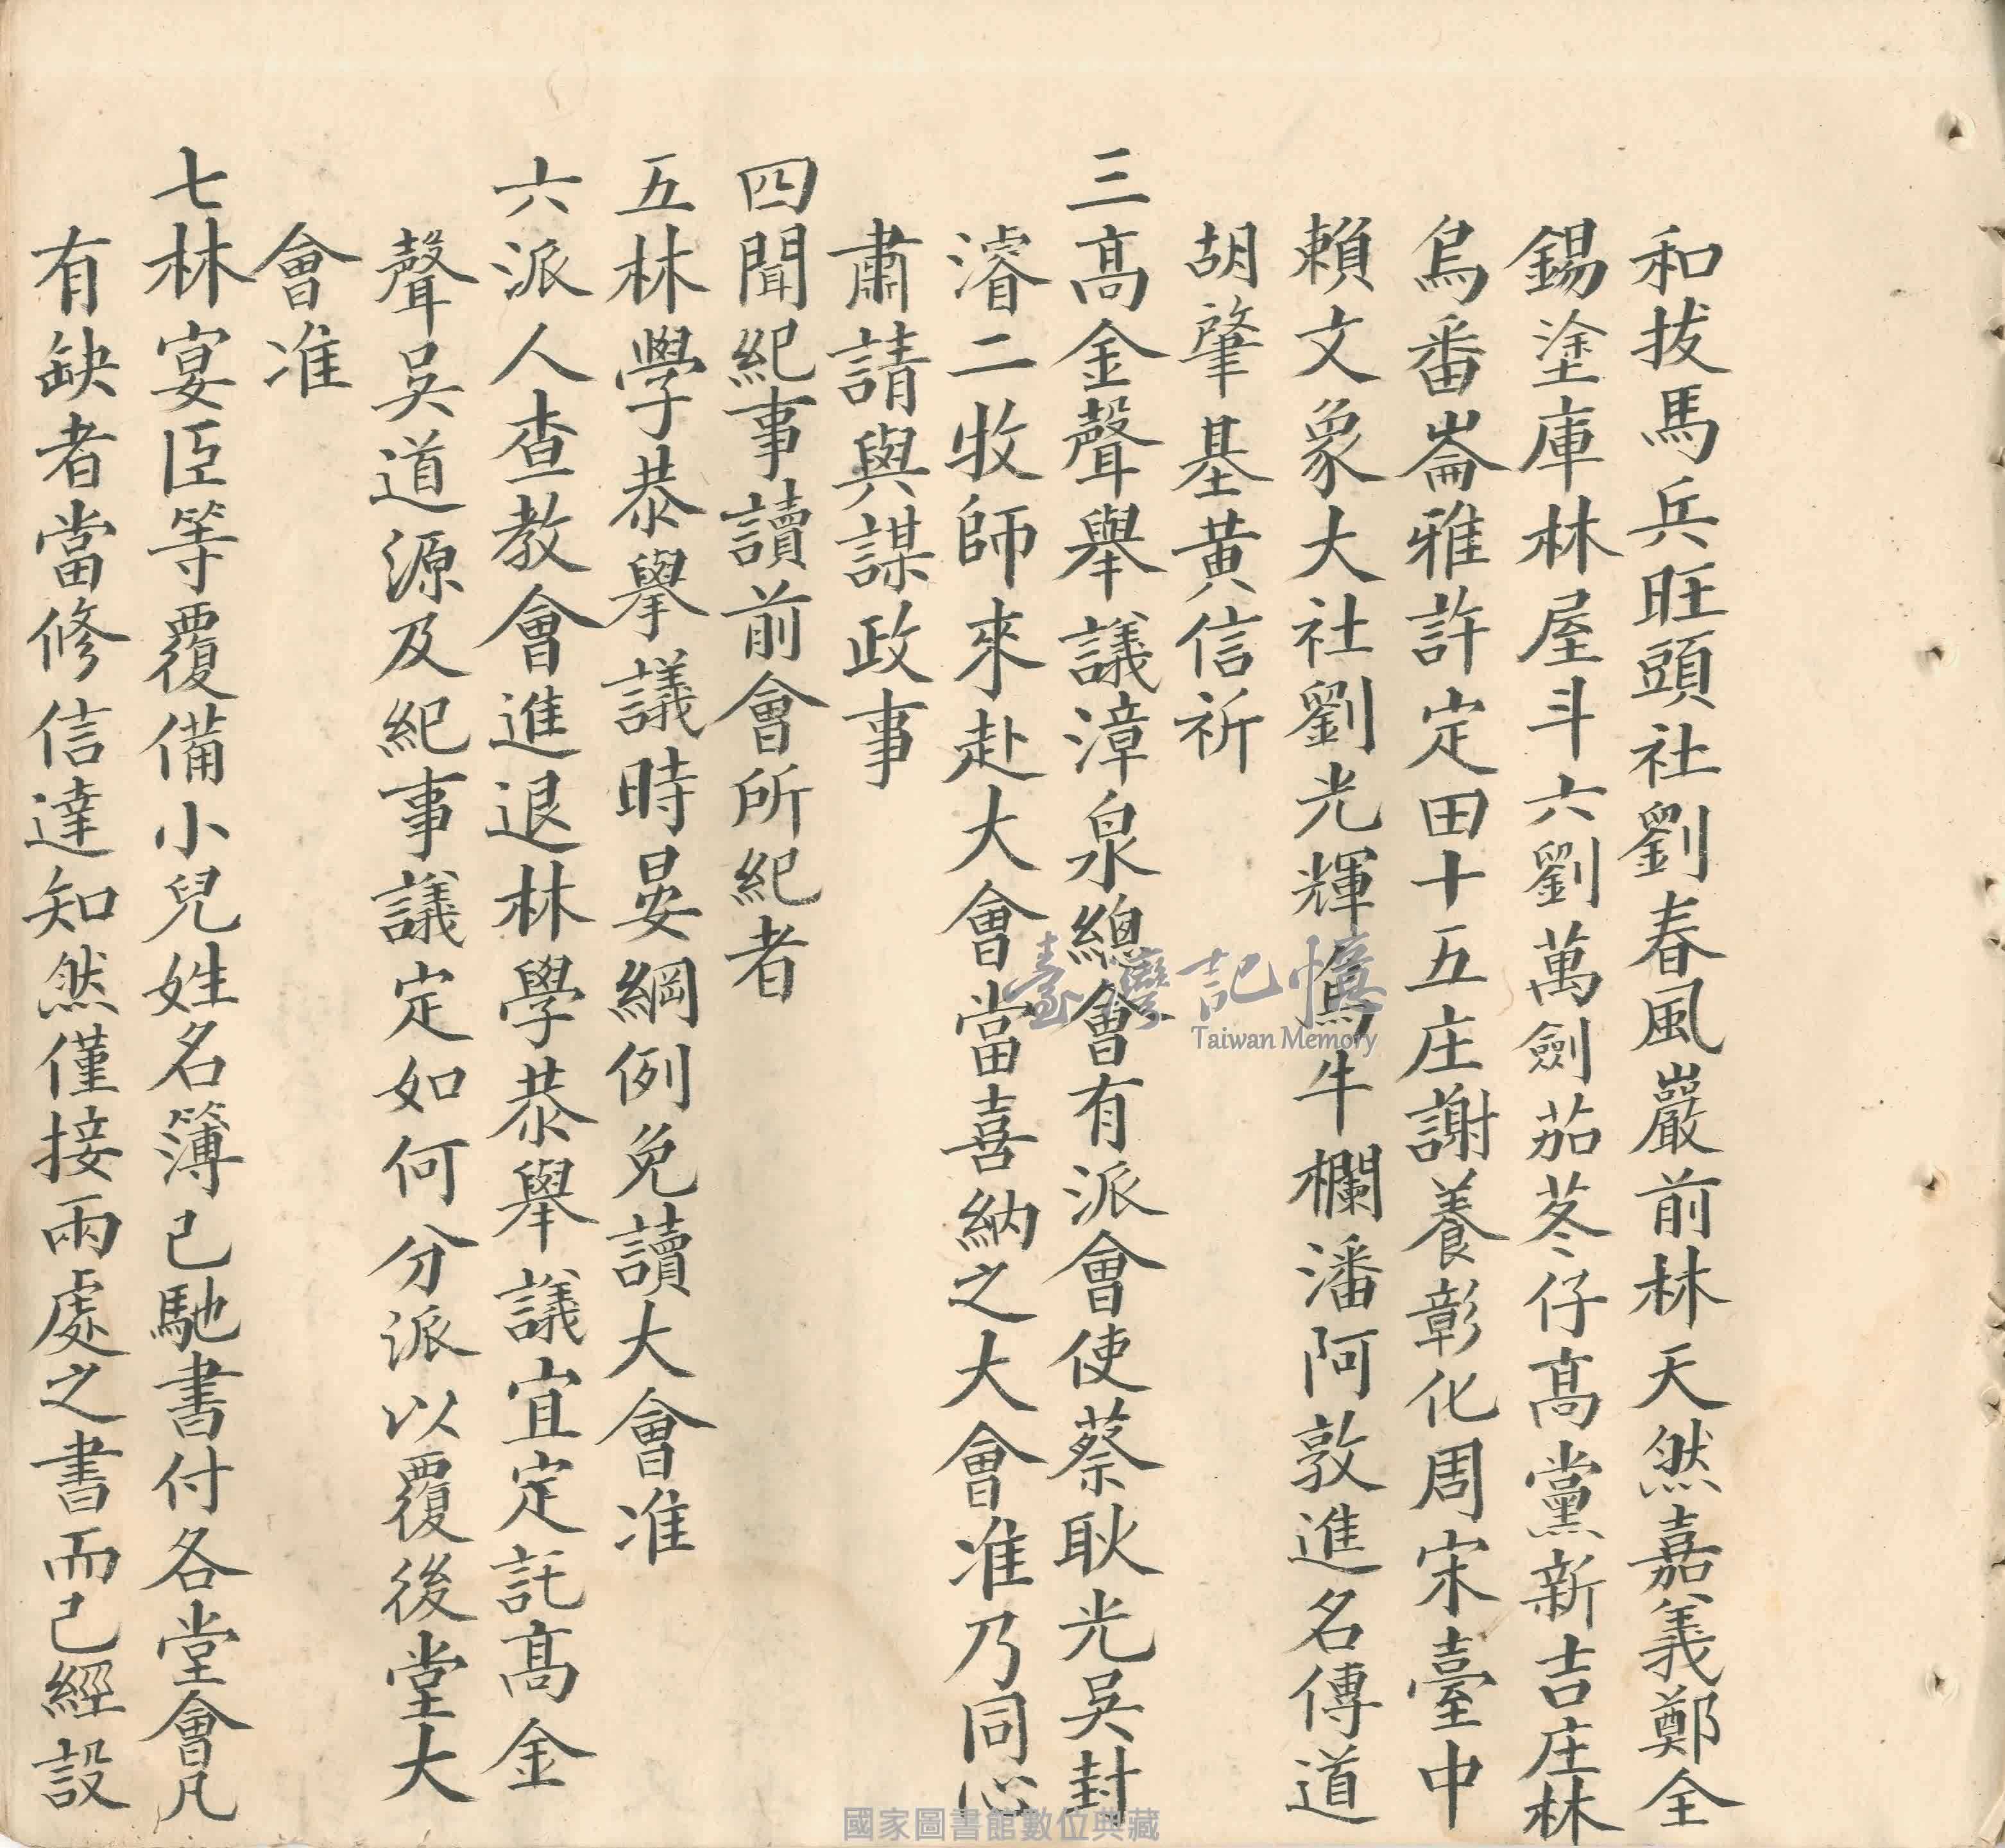 和拔馬兵旺頭社劉春風巖前林天然嘉義鄭全
錫塗庫林屋斗六劉萬劍茄苳仔高黨新吉庄林
烏番崙雅許定田十五庄謝養彰化周宋臺中
賴文象大社劉光輝烏牛欄潘阿敦進名傳道
胡肇基黃信祈
三高金聲舉議漳泉總會有派會使蔡耿光吳封
濬二牧師來赴大會當喜納之大會准乃同心
肅請與謀政事
四聞紀事讀前會所紀者
五林學恭舉議時晏綱例免讀大會准
六派人查教會進退林學恭舉議宜定託高金
聲吳道源及紀事議定如何分派以覆後堂大
會准
七林宴臣等覆備小兒姓名簿已馳書付各堂會凡
有缺者當修信達知然僅接兩處之書而已經設
臺灣記憶
Taiwan Memory
國家圖書館數位典藏